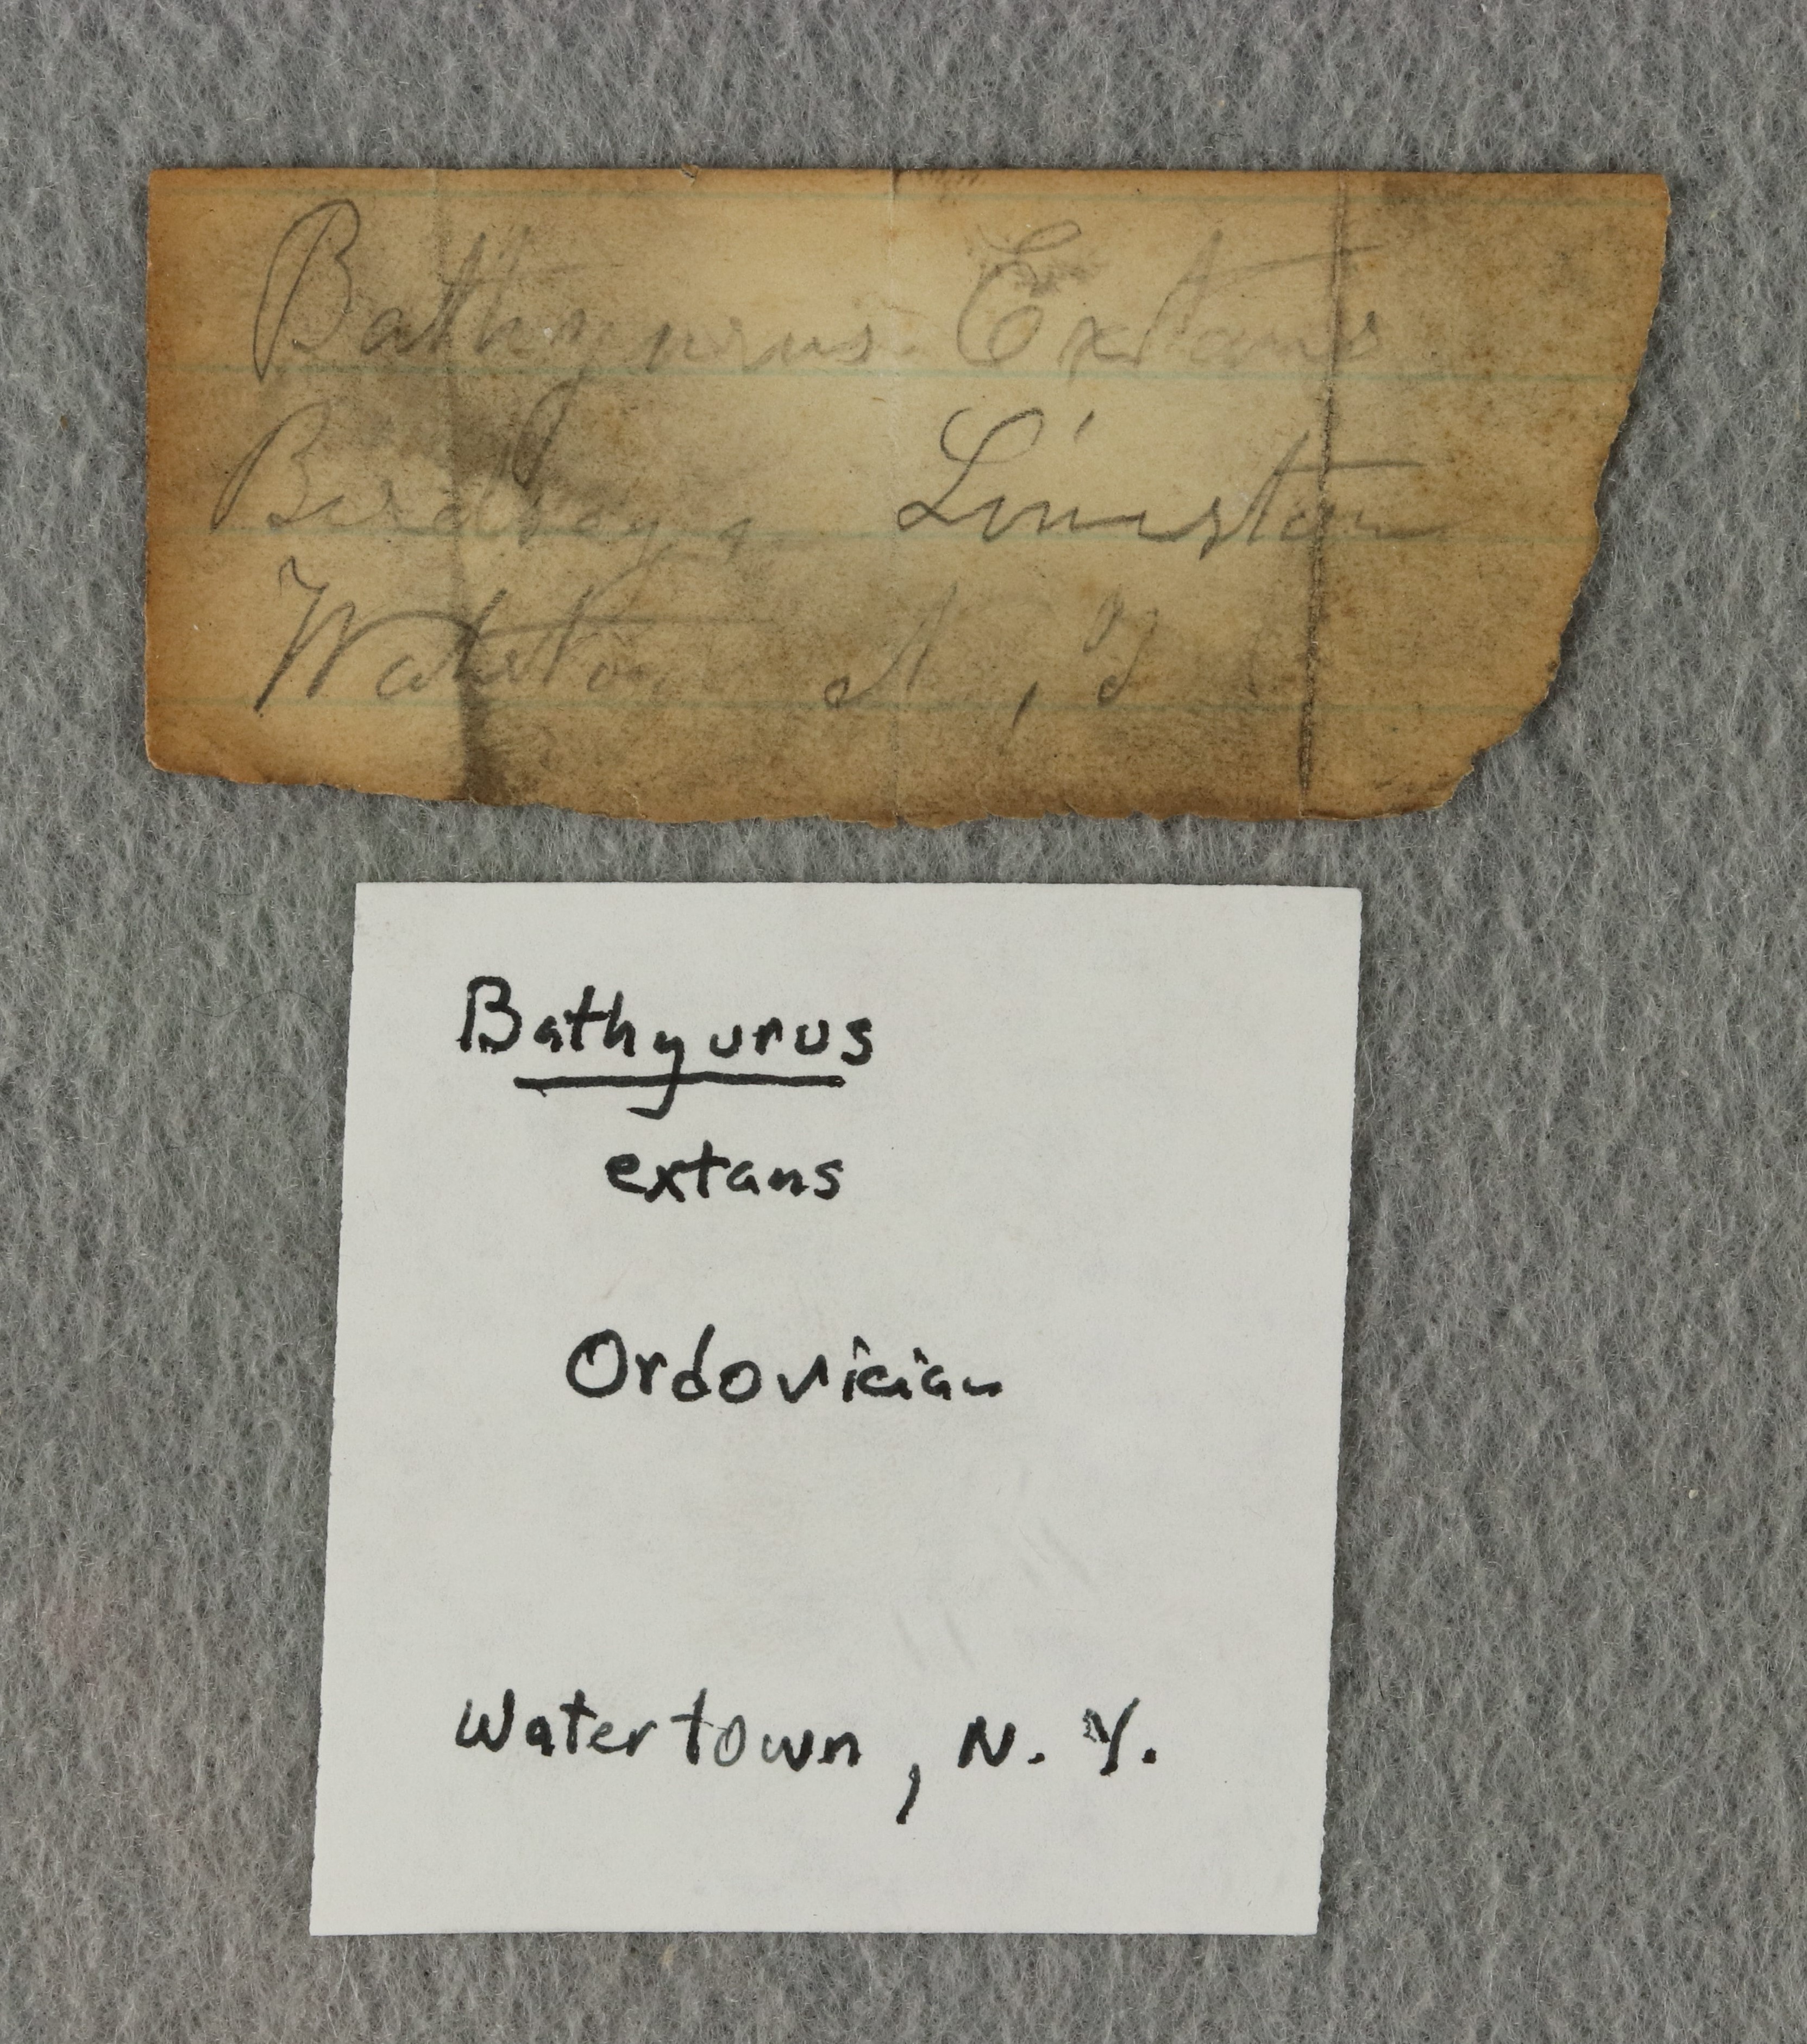 Bathyurus Extans
Birdseye Limeston
Watertown N, Y
Bathyurus
extans
Ordovician
Watertown, N. Y.